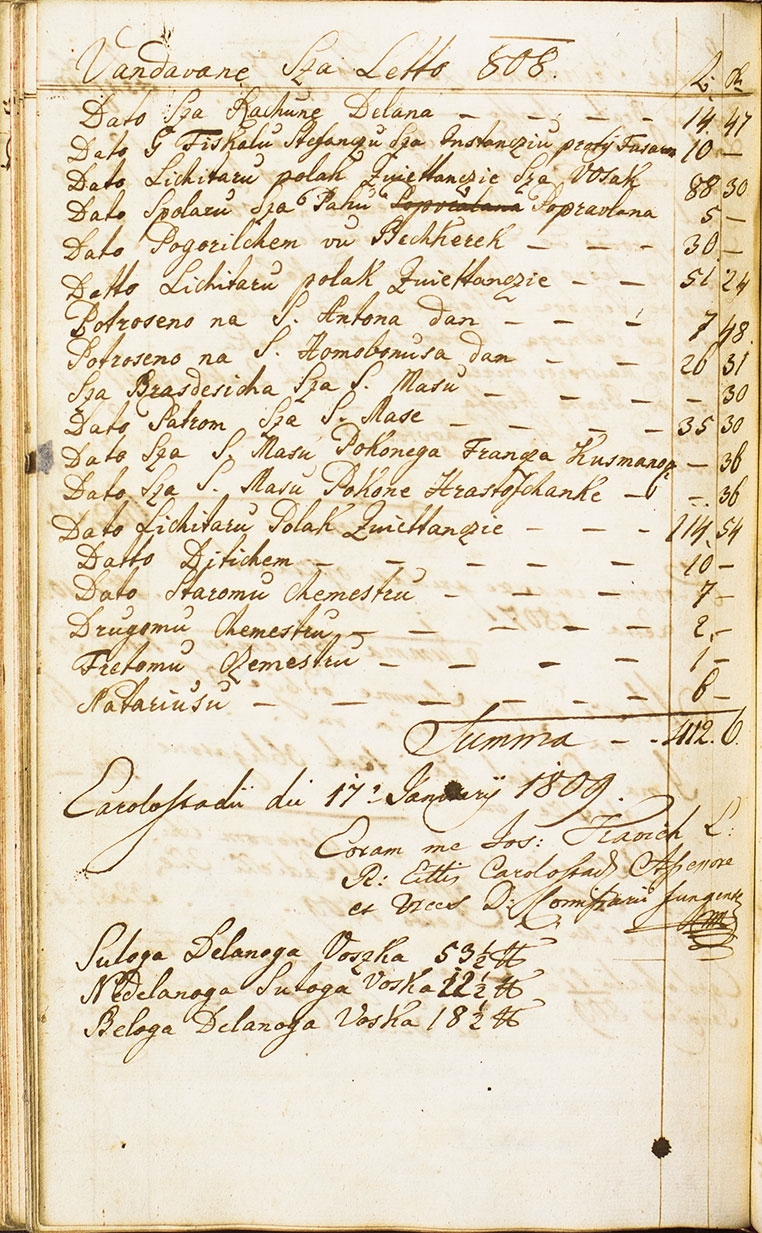 Vandavane Sza Letto 808.
R: Xr
Dato Sza Rachune Delana - - - - - 14. 47
Dato G Fiskalu Stefanczu Sza Instancziu protj Fusarom 10 -
Dato Lichitaru polak Zviettanczie Sza Vosak 88 30
Dato Spolaru Sza Pahu Popravlana 5 -
Dato Pogorilchem vu Bechkerek - - - - 30. -
Datto Lichitaru polak Zviettanczie - - - 51 24
Potroseno na S. Antona dan - - - - 7 48.
Potroseno na S. Homobonusa dan - - - 26 31
Sza Brasdesicha Sza S. Masu - - - - - 30
Dato Patrom Sza S. Mase - - - - - 35 30
Dato Sza S. Masu Pokonega Francza Kusmanop - 36
Dato Sza S. Masu Pokone Hrastofchanke - - 36
Dato Lichitaru Polak Zviettanczie - - - 114. 54
Datto Ditichem - - - - - - 10 -
Dato Staromu Chemestru - - - - 7 -
Drugomu Chemestru - - - - - 2. -
Tretomu Czemestru - - - - 1 -
Natariusu - - - - - - 6 -
Summa - - 412. 6.
Carolostadii die 17a Januarij 1809.
Coram me Jos: L:
R: Cittis Carolostad Assessore
et vices D: Comissarii fungente
Suloga Delanoga Voszka 53 1/2 ℔
Nedelanoga Sutoga Voska 22 1/2 ℔
Beloga Delanoga Voska 18 1/2 ℔